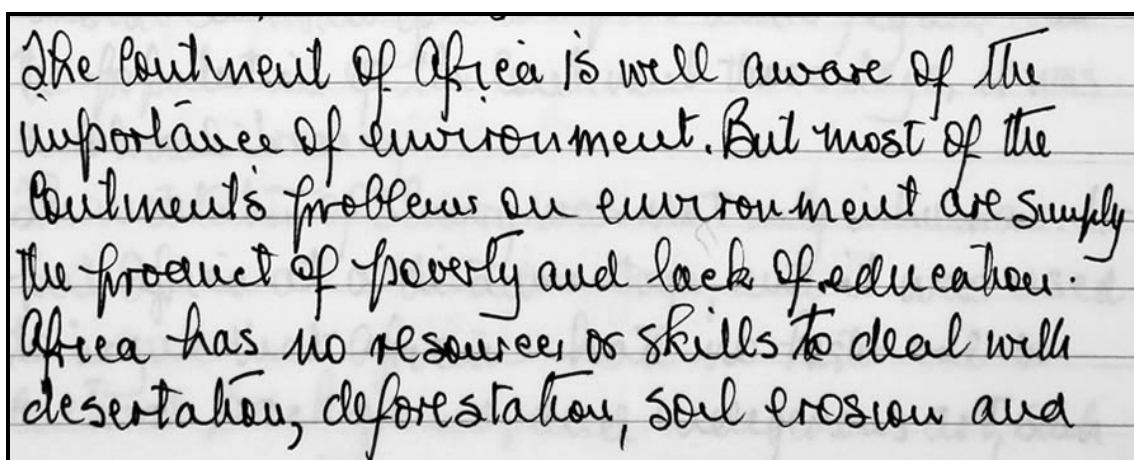 The Continent of Africa is well aware of the
importance of environment. But most of the
Continent's problems on environment are simply
the product of poverty and lack of education.
Africa has no resources or skills to deal with
desertation, deforestation, soil erosion and